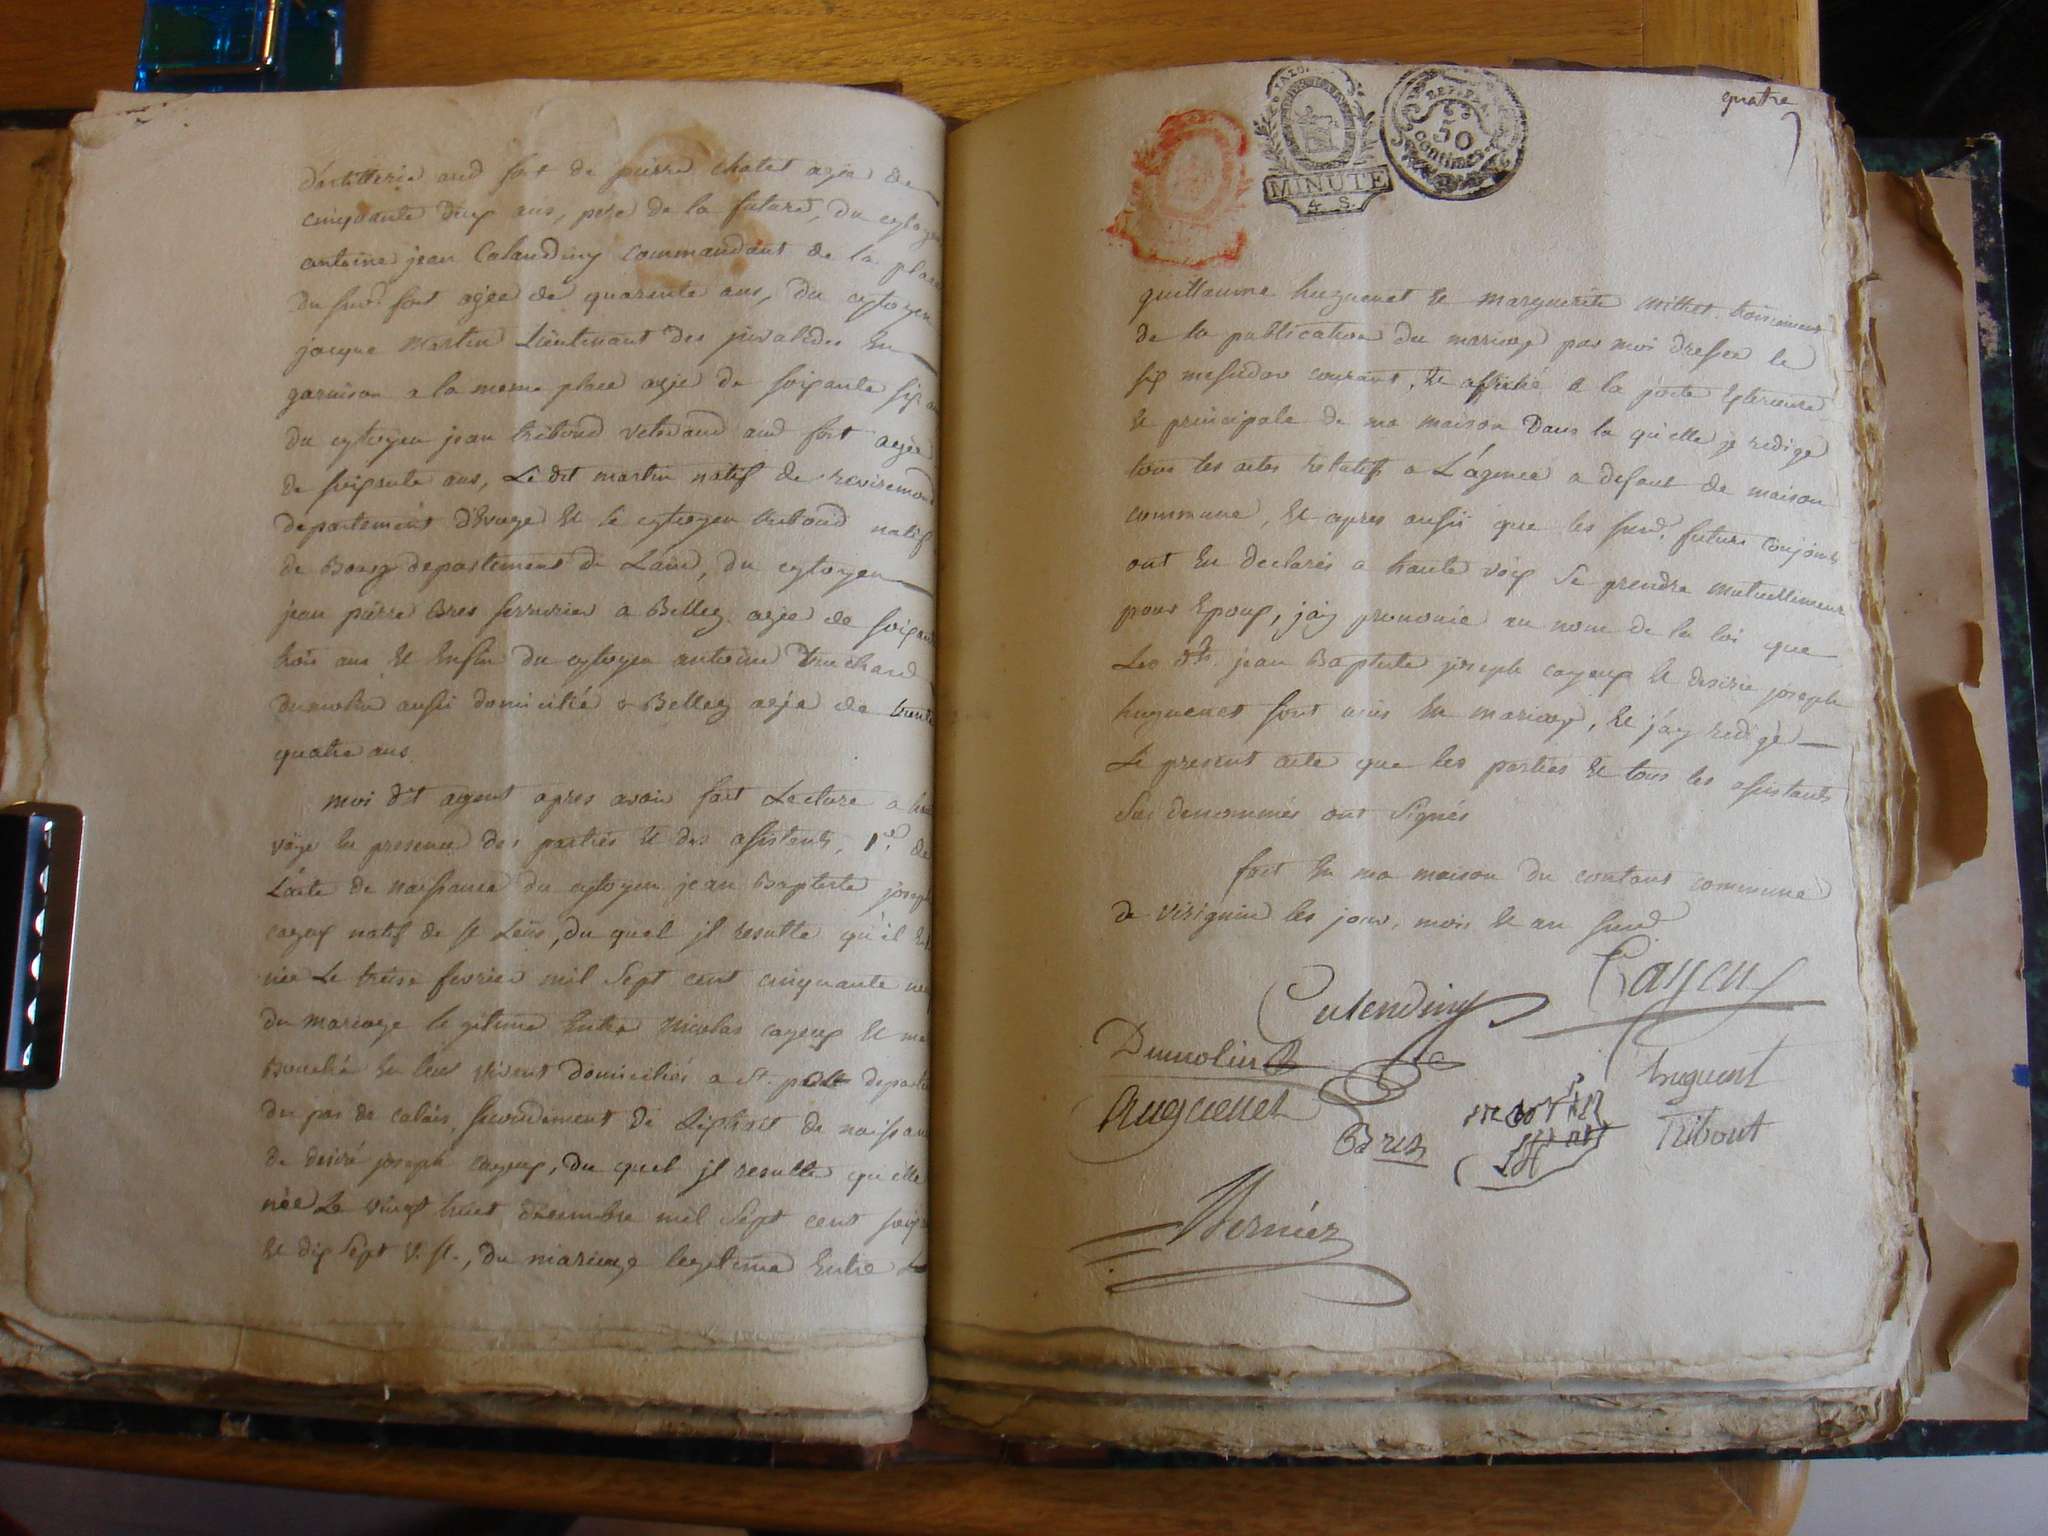 d'artillerie aud fort de pierre chatel agée de
cinquante deux ans, pere de la future, du cytoyen
antoine jean Calandiny commandant de la place
du susd. fort agée de quarente ans, du cytoyen
jacque Martin Lieutenant des jnvalides en
garnison a la meme place agée de soixante six
du cytoyen jean triboud veterand aud fort agée
de soixante ans, Le dit martin natif de
departement d'Evoge et le cytoyen triboud natif
de Bourg departement de Laind, du cytoyen
jean pierre Bres serrurier a Belley agée de soixante
trois ans et Enfin du cytoyen antoine
dumolin aussi domicilié a Belley agée de trente
quatre ans
moi dit agent apres avoir fait Lecture a haute
voix En presence des parties et des assistents, 1er. de
L'acte de naissance du cytoyen jean Baptiste joseph
cayeux natif de st Leüs, du quel jl resulte qu'il Est
née Le treise fevrier mil sept cent cinquante neuf
du mariage legitime Entre Nicolas cayeux et
Bouché En leur vivent domiciliés a st. departement
du pas de calais, secondement de L'éxtrait de naissance
de desiré joseph cayeux, du quel jl resulte qu'elle
née Le vingt huit décembre mil sept cent soixante
et dix sept v. st., du mariage legitime Entre
quatre
MINUTE
4. S.
50
centimes
guillaume huguenet et marguerite troisiement
de la publication du mariage par moi dressée le
six messidor courant, et affiché a la porte Exterieure
et principale de ma maison Dans la qu'elle je redige
tous les actes relatifs a L'agence a defaut de maison
commune, et apres aussi que les susd. futurs conjoints
ont Eu declarés a haute voix se prendre mutuellement
pour Epoux, j'ay prononcé au nom de la loi que
Les dts. jean Baptiste joseph cayeux et desirée joseph
huguenet sont unis En mariage, et j'ay redigé
Le present acte que les parties et tous les assistants
sus denommés ont signés
fait En ma maison du contant commune
de virignin les jour, mois et an susd
Calendiny Cayeux
Dumolin
huguenet
huguenet
Bres
martin
Tribout
Mernier